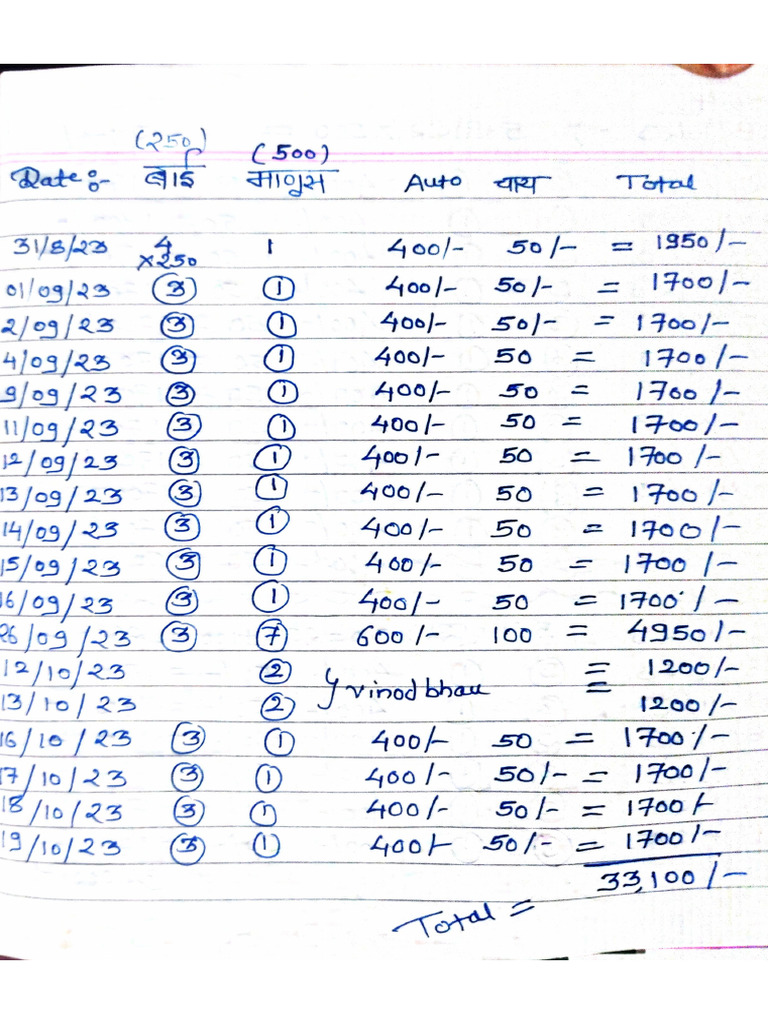 (250) (500)
Date:- बाई माणूस Auto चाय Total
31/8/23 4 1 400/- 50/- = 1950/-
×250
01/09/23 3 1 400/- 50/- = 1700/-
2/09/23 3 1 400/- 50/- = 1700/-
4/09/23 3 1 400/- 50 = 1700/-
9/09/23 3 1 400/- 50 = 1700/-
11/09/23 3 1 400/- 50 = 1700/-
12/09/23 3 1 400/- 50 = 1700/-
13/09/23 3 1 400/- 50 = 1700/-
14/09/23 3 1 400/- 50 = 1700/-
15/09/23 3 1 400/- 50 = 1700/-
16/09/23 3 1 400/- 50 = 1700/-
26/09/23 3 7 600/- 100 = 4950/-
12/10/23 2 = 1200/-
vinod bhau
13/10/23 2 = 1200/-
16/10/23 3 1 400/- 50 = 1700/-
17/10/23 3 1 400/- 50/- = 1700/-
18/10/23 3 1 400/- 50/- = 1700/-
19/10/23 3 1 400/- 50/- = 1700/-
33,100/-
Total =